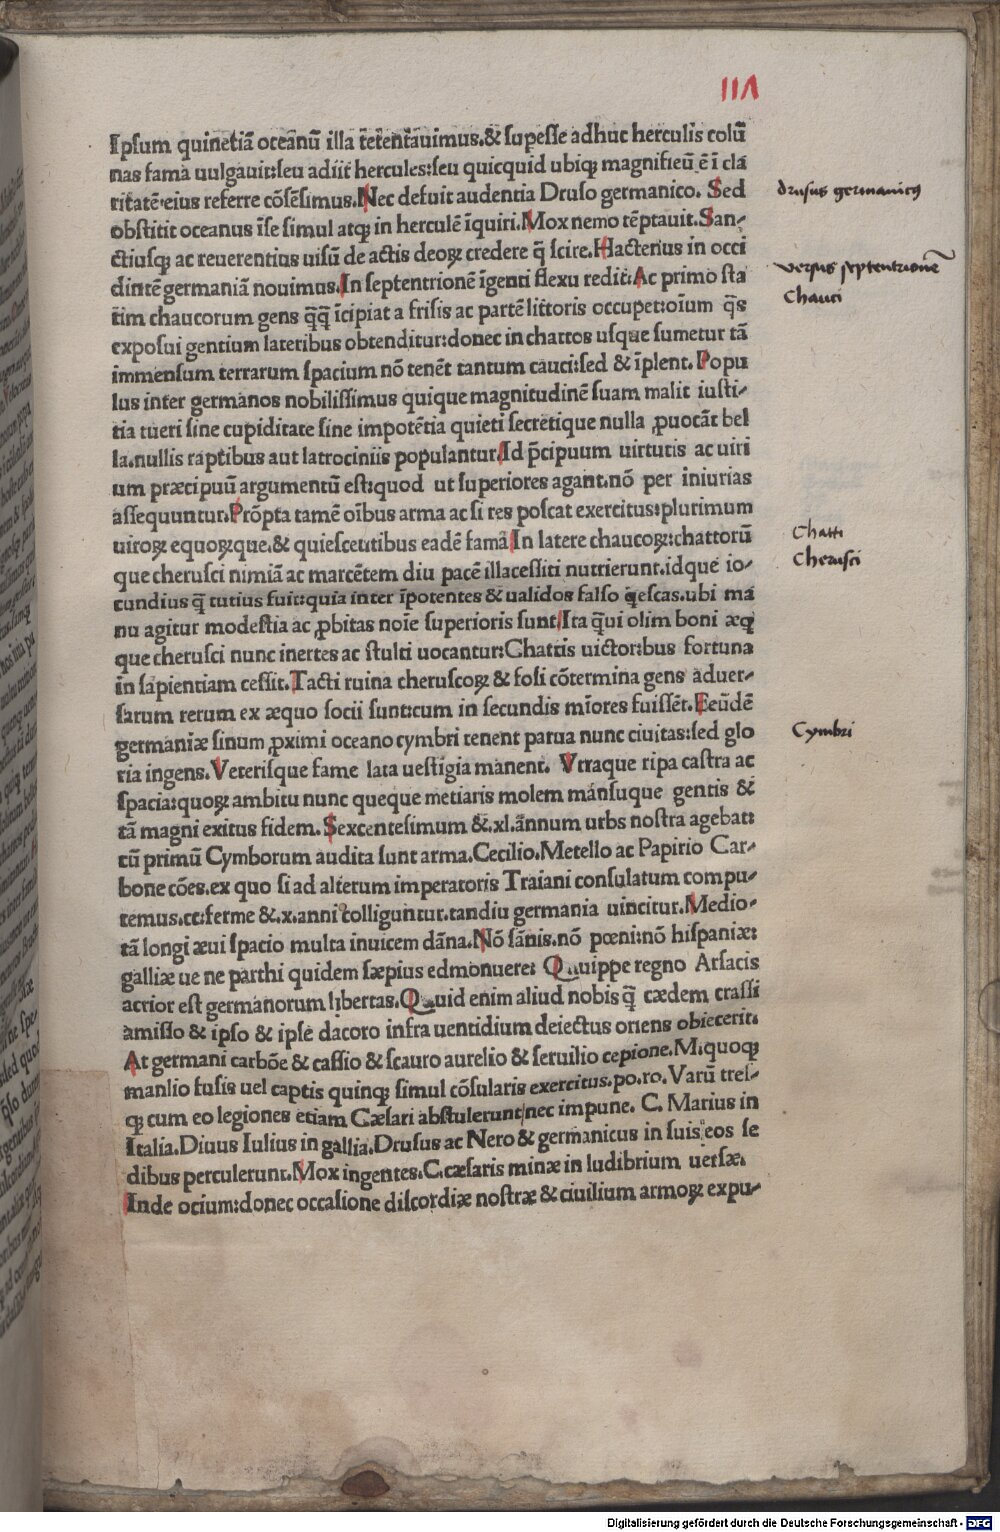 118
Ipsum quinetiā oceanū illa tētentāuimus.& supesse adhuc herculis colū
nas fama uulgauit:seu adiit hercules:seu quicquid ubiqꝫ magnificū ē ī cla
ritatē eius referre cōsēsimus.Nec defuit audentia Druso germanico. Sed
obstitit oceanus īse simul atqꝫ in herculē īquiri.Mox nemo tēptauit.San-
ctiusqꝫ ac reuerentius uisū de actis deoꝝ credere q̄ scire.Hactenus in occi
dintē germaniā nouimus.In septentrionē īgenti flexu redit:Ac primo sta
tim chaucorum gens q̄q̄ īcipiat a frisis ac partē littoris occupet:oīum q̄s
exposui gentium lateribus obtenditur:donec in chattos usque sumetur tā
immensum terrarum spacium nō tenēt tantum cauci:sed & īplent. Popu
lus inter germanos nobilissimus quique magnitudinē suam malit iusti-
tia tueri sine cupiditate sine impotētia quieti secretique nulla ꝓuocāt bel
la.nullis raptibus aut latrociniis populantur.Id p̄cipuum uirtutis ac uiri
um præcipuū argumentū est:quod ut superiores agant.nō per iniurias
assequuntur.Prōpta tamē oībus arma ac si res poscat exercitus:plurimum
uiroꝝ equoꝝque.& quiescentibus eadē fama In latere chaucoꝝ:chattorū
que cherusci nimiā ac marcētem diu pacē illacessiti nutrierunt.idque io-
cundius q̄ tutius fuit:quia inter īpotentes & ualidos falso q̄escas.ubi ma
nu agitur modestia ac ꝓbitas noīe superioris sunt.Ita q̄ui olim boni æqꝫ
que cherusci nunc inertes ac stulti uocantur:Chattis uictoribus fortuna
in sapientiam cessit.Tacti ruina cheruscoꝝ & fosi cōtermina gens aduer-
sarum rerum ex æquo socii sunt:cum in secundis mīores fuissēt.Eeūdē
germaniæ sinum ꝓximi oceano cymbri tenent parua nunc ciuitas:sed glo
ria ingens.Veterisque fame lata uestigia manent. Vtraque ripa castra ac
spacia:quoꝝ ambitu nunc queque metiaris molem mānsuque gentis &
tā magni exitus fidem.Sexcentesimum &.xl.annum urbs nostra agebat:
cū primū Cymborum audita sunt arma.Cecilio.Metello ac Papirio Car-
bone cōes.ex quo si ad alterum imperatoris Traiani consulatum compu-
temus.cc:ferme &.x.anni colliguntur.tandiu germania uincitur.Medio-
tā longi æui spacio multa inuicem dāna.Nō sānis.nō pœni:nō hispaniæ:
galliæ ue ne parthi quidem sæpius edmonuere: Quippe regno Arsacis
acrior est germanorum libertas.Quid enim aliud nobis q̄ cædem crassi
amisso & ipso & ipse dacoro infra uentidium deiectus oriens obiecerit:
At germani carbōe & cassio & scauro aurelio & seruilio cepione.M.quoqꝫ
manlio fusis uel captis quinqꝫ simul cōsularis exercitus.po.ro.Varū tres-
qꝫ cum eo legiones etiam Cæsari abstulerunt nec impune. C. Marius in
Italia.Diuus Iulius in gallia.Drusus ac Nero & germanicus in suis eos se
dibus perculerunt.Mox ingentes.C.cæsaris minæ in ludibrium uersæ.
Inde ocium:donec occasione discordiæ nostræ & ciuilium armoꝝ expu-
drusus germanicus
versus septentrionē
Chauci
Chatti
Cherusci
Cymbri
Digitalisierung gefördert durch die Deutsche Forschungsgemeinschaft - DFG